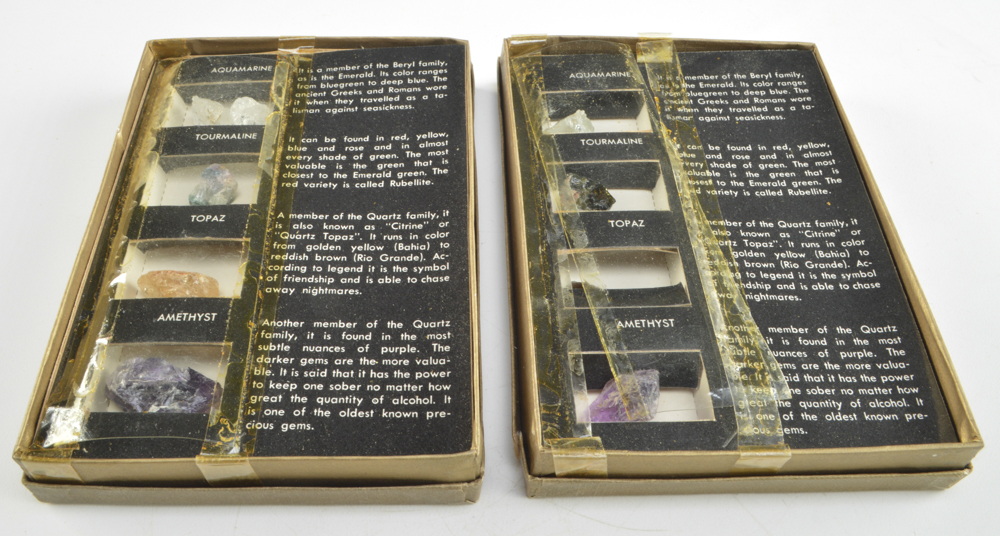 AQUAMARINE
It is a member of the Beryl family,
as is the Emerald. Its color ranges
from bluegreen to deep blue. The
ancient Greeks and Romans wore
it when they travelled as a ta-
lisman against seasickness.
TOURMALINE
It can be found in red, yellow,
blue and rose and in almost
every shade of green. The most
valuable is the green that is
closest to the Emerald green. The
red variety is called Rubellite.
TOPAZ
A member of the Quartz family, it
is also known as "Citrine" or
"Quartz Topaz". It runs in color
from golden yellow (Bahia) to
reddish brown (Rio Grande). Ac-
cording to legend it is the symbol
of friendship and is able to chase
away nightmares.
AMETHYST
Another member of the Quartz
family, it is found in the most
subtle nuances of purple. The
darker gems are the more valua-
ble. It is said that it has the power
to keep one sober no matter how
great the quantity of alcohol. It
is one of the oldest known pre-
cious gems.
AQUAMARINE
It is a member of the Beryl family,
as is the Emerald. Its color ranges
from bluegreen to deep blue. The
ancient Greeks and Romans wore
it when they travelled as a ta-
lisman against seasickness.
TOURMALINE
It can be found in red, yellow,
blue and rose and in almost
every shade of green. The most
valuable is the green that is
closest to the Emerald green. The
red variety is called Rubellite.
TOPAZ
member of the Quartz family, it
also known as "Citrine" or
"Quartz Topaz". It runs in color
golden yellow (Bahia) to
reddish brown (Rio Grande). Ac-
cording to legend it is the symbol
of friendship and is able to chase
away nightmares.
AMETHYST
Another member of the Quartz
family, it is found in the most
subtle nuances of purple. The
darker gems are the more valua-
ble. It is said that it has the power
to keep one sober no matter how
great the quantity of alcohol. It
is one of the oldest known pre-
cious gems.